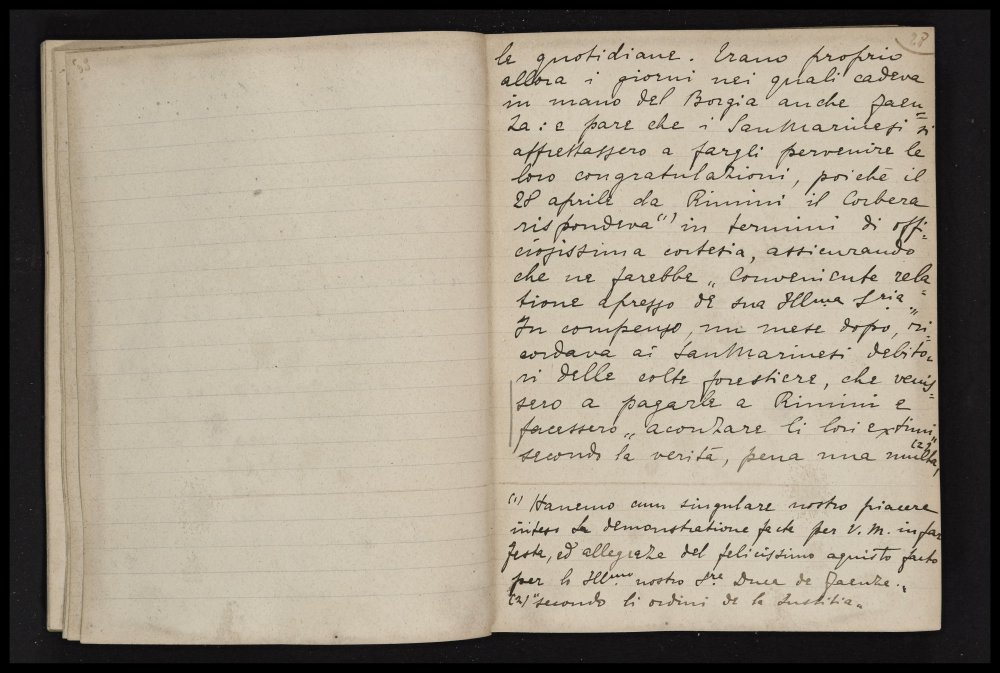 28
le quotidiane. Erano proprio
allora i giorni nei quali cadeva
in mano del Borgia anche Faen=
za: e pare che i SanMarinesi si
affrettassero a fargli pervenire le
loro congratulazioni, poichè il
28 aprile da Rimini il Corbera
rispondeva (1) in termini di offi=
ciosissima cortesia, assicurando
che ne farebbe „ conveniente rela=
tione apresso de sua Illma Sria „
In compenso, un mese dopo, ri=
cordava ai SanMarinesi debito=
ri delle colte forestiere, che venis=
sero a pagarle a Rimini e
facessero „ aconzare li lori extimi „
secondo la verità, (2) pena una multa,
(1) Hanemo cum singulare nostro piacere
inteso la demonstratione facta per V. M. in far
festa, ed allegreze del felicissimo aquisto facto
per lo Illmo nostro Sre Duca de Faenza. „
(2) "secondo li ordini de la Iustitia„